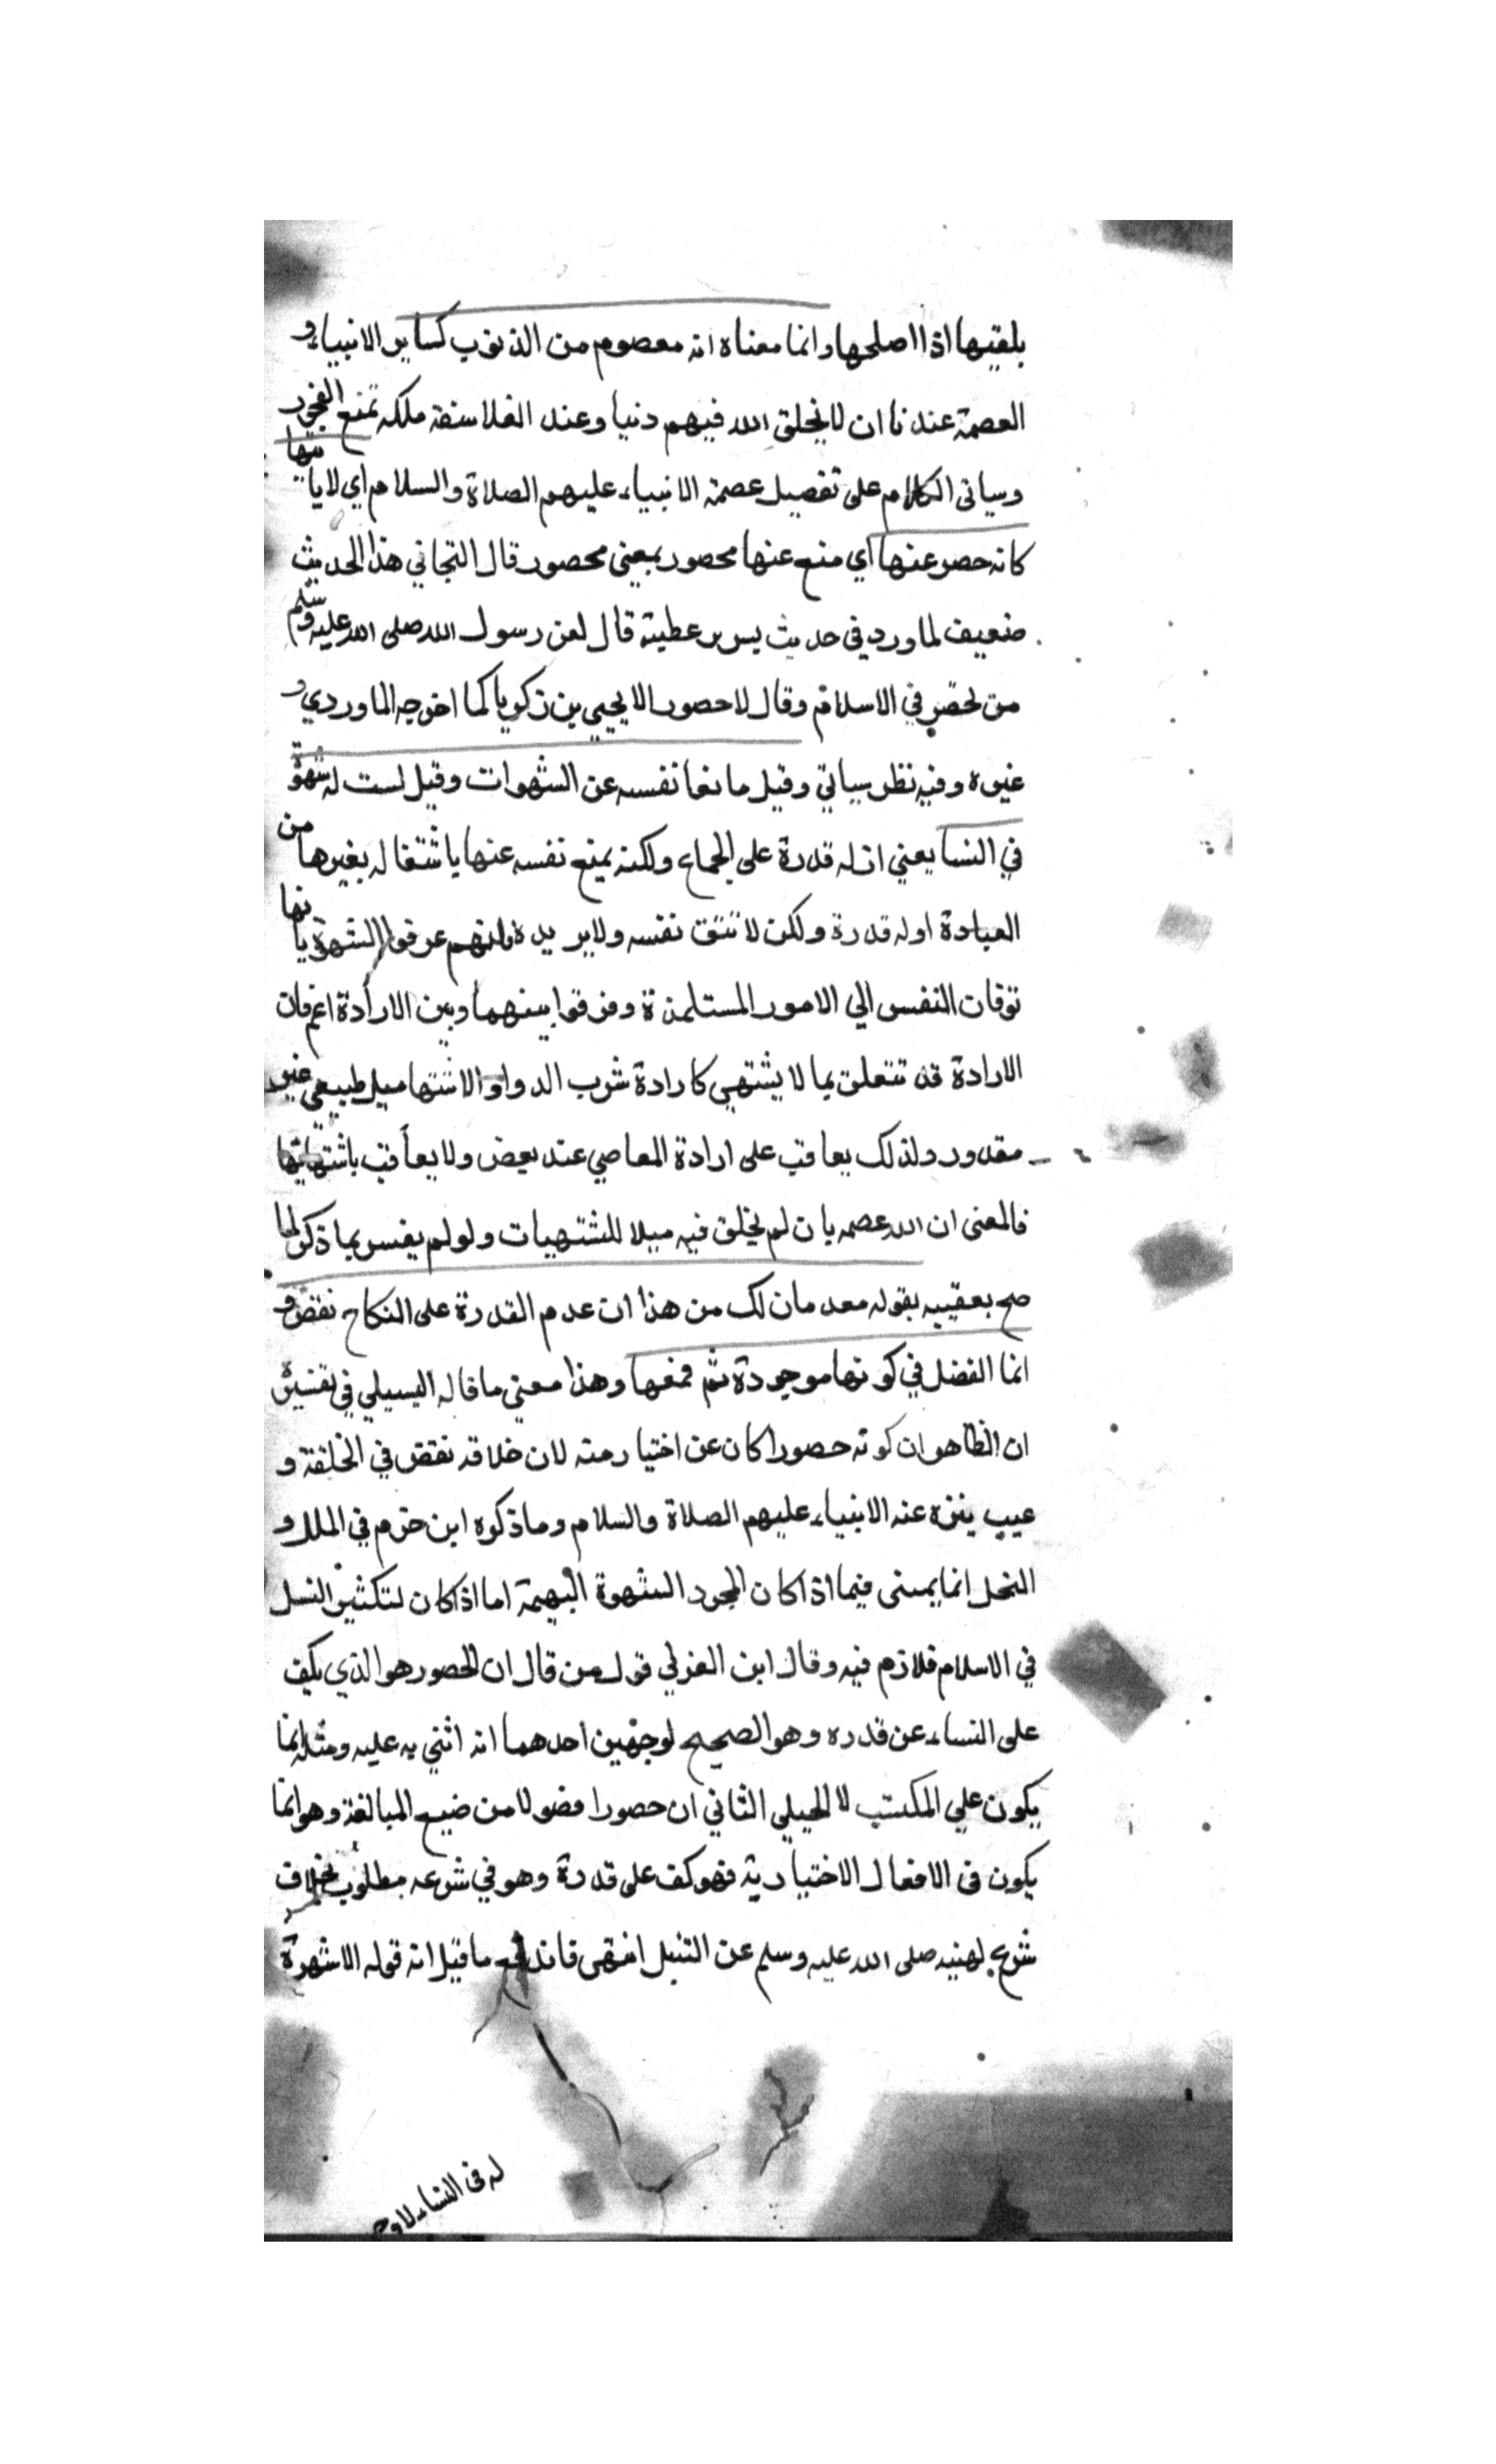 بلقيها اذا اصلحها وانما معناه انه معصوم من الذنوب كساير الانبياء و
العصمة عندنا ان لا يخلق الله فيهم دنيا وعند الفلاسفة ملكه تمنع الفجور
وسياتى الكلام على تفصيل عصمة الانبياء عليهم الصلاة والسلام اي لا ياتيها
كانه حصر عنها اي منع عنها محصور بمعنى محصور قال التجاني هذا الحديث
ضعيف لما ورد في حديث يس بن عطية قال لعن رسول الله صلى الله عليه وسلم
من تحصر في الاسلام وقال لا حصور الا يحيى بن زكريا كما اخرجه الماوردي و
غيره وفيه نظر سياتي وقيل مانعا نفسه عن الشهوات وقيل لست له شهوة
في النسا يعني ان له قدرة على الجماع ولكنه يمنع نفسه عنها باشتغاله بغيرها من
العبادة او له قدرة ولكن لا تتق نفسه ولا يريده فانهم عرفوا الشهوة بانها
توقان النفس الي الامور المستلذة وفرقوا بينهما وبين الارادة اعم فان
الارادة قد تتعلق بما لا يشتهي كارادة شرب الدواو الاشتها ميل طبيعي غير
مقدور ولذلك يعاقب على ارادة المعاصي عند بعض ولا يعاقب باشتهائها
فالمعنى ان الله عصمه بان لم يخلق فيه ميلا للمشتهيات ولو لم يفسر بما ذكر لما
صح بعقيبه بقوله معد مان لك من هذا ان عدم القدرة على النكاح نقض و
انما الفضل في كونها موجودة ثم قمعها وهذا معني ما قاله البسيلي في تفسيره
ان الظاهر ان كونه حصورا كان عن اختيار منه لان خلاقه نقض في الخلقة و
عيب ينزه عنه الانبياء عليهم الصلاة والسلام وما ذكره ابن حزم في الملل و
النحل انما يمسى فيما اذا كان لمجرد الشهوة البهيمة اما اذا كان لتكثير النسل
في الاسلام فلازم فيه وقال ابن العزلي قول من قال ان الحصور هو الذي يكف
على النساء عن قدره وهو الصحيح لوجهين احدهما انه اثني به عليه ومثله انما
يكون علي المكتسب لا الجبلي الثاني ان حصورا فضولا من ضيع المبالغة وهو انما
يكون في الافعال الاختيارية فهو كف على قدرة وهو في شرعه مطلوب بخلاف
شرع لهنيه صلى الله عليه وسلم عن التنبل انتهى فاندفع ما قيل انه قوله لا شهرة
له في النساء لا وجه